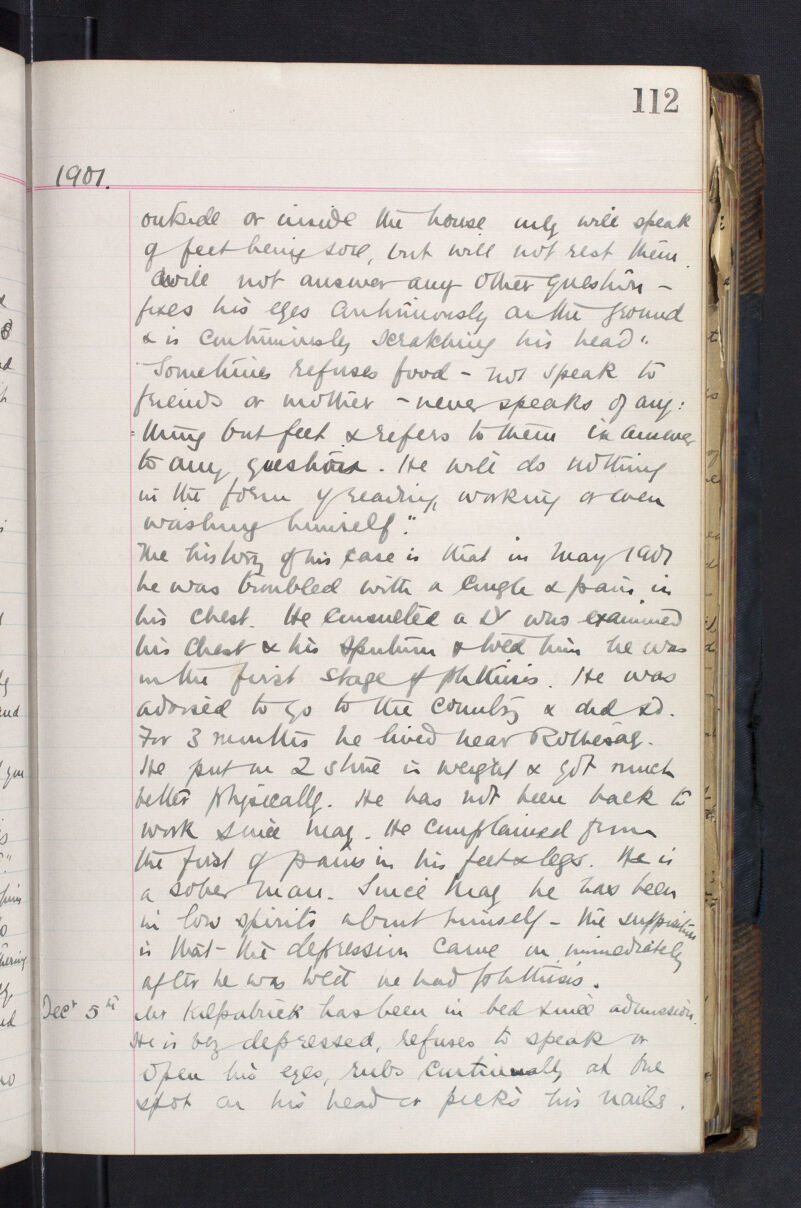 112
1901.
outside or inside the house only will speak
of feet being sore, but will not rest them.
Will not answer any other question -
fixes his eyes continuously on the ground
& is continuously scratching his head"
"Sometimes refuses food - not speak to
friends or mother - never speaks of any:
=thing but feet & refers to them in answer
to any question. He will do nothing
in the form of reading, working or even
washing himself."
The history of his case is that in May 1901
he was troubled with a cough & pain in
his chest. He consulted a Dr who examined
his chest & his sputum & told him he was
in the first stage of phthisis. He was
advised to go to the country & did so.
For 3 months he lived near Rothesay.
He put on 2 stone in weight & got much
better physically. He has not been back to
work since May. He complained from
the first of pains in his feet & legs. He is
a sober man. Since May he has been
in low spirits about himself - the supposition
is that the depression came on immediately
after he was told he had phthisis.
Decr 5th Mr Kilpatrick has been in bed since admission.
He is very depressed, refuses to speak or
open his eyes, rubs continually at one
spot on his head or picks his nails.